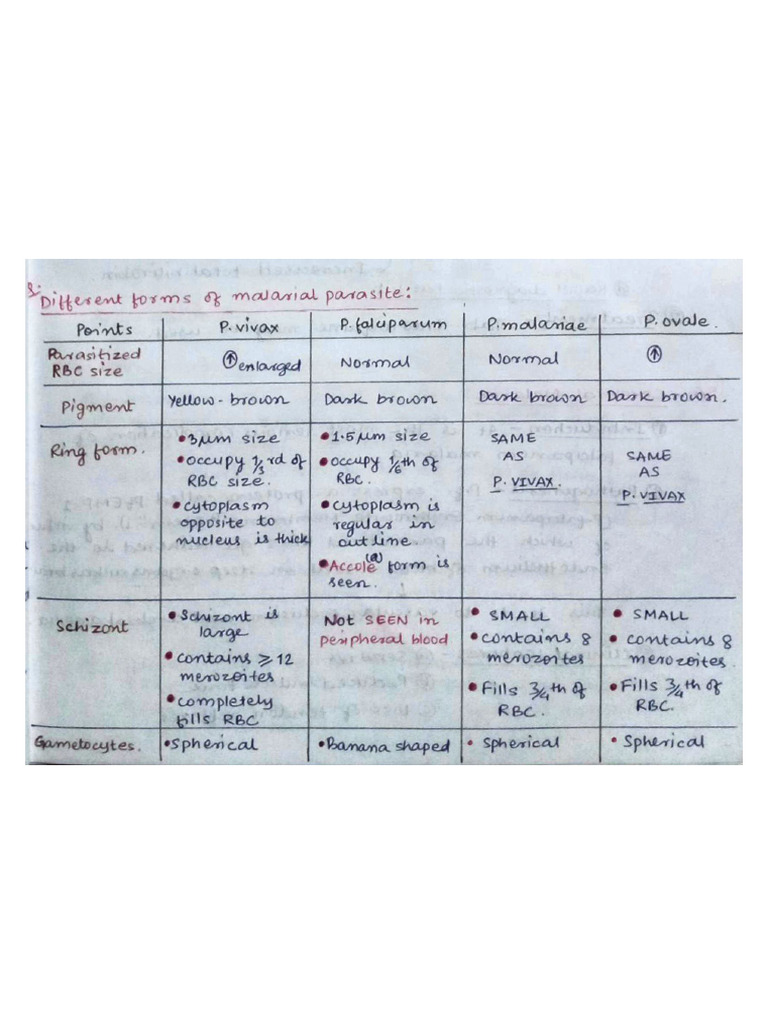 Different forms of malarial parasite:
Points P. vivax P. falciparum P. malariae P. ovale.
Parasitized RBC size ↑ enlarged Normal Normal ↑
Pigment Yellow-brown Dark brown Dark brown Dark brown.
Ring form.
• 3μm size
• occupy 1/3 rd of
RBC size.
• cytoplasm
opposite to
nucleus is thick
• 1.5μm size
• occupy 1/6th of
RBC.
• cytoplasm is
regular in
outline
• Accole (a) form is
seen.
SAME
AS
P. VIVAX.
SAME
AS
P. VIVAX
Schizont
• Schizont is
large
• contains ⩾ 12
merozoites
• completely
fills RBC
Not SEEN in
peripheral blood
• SMALL
• contains 8
merozoites
• Fills 3/4th of
RBC.
• SMALL
• contains 8
merozoites.
• Fills 3/4th of
RBC.
Gametocytes. • Spherical • Banana shaped • Spherical • Spherical